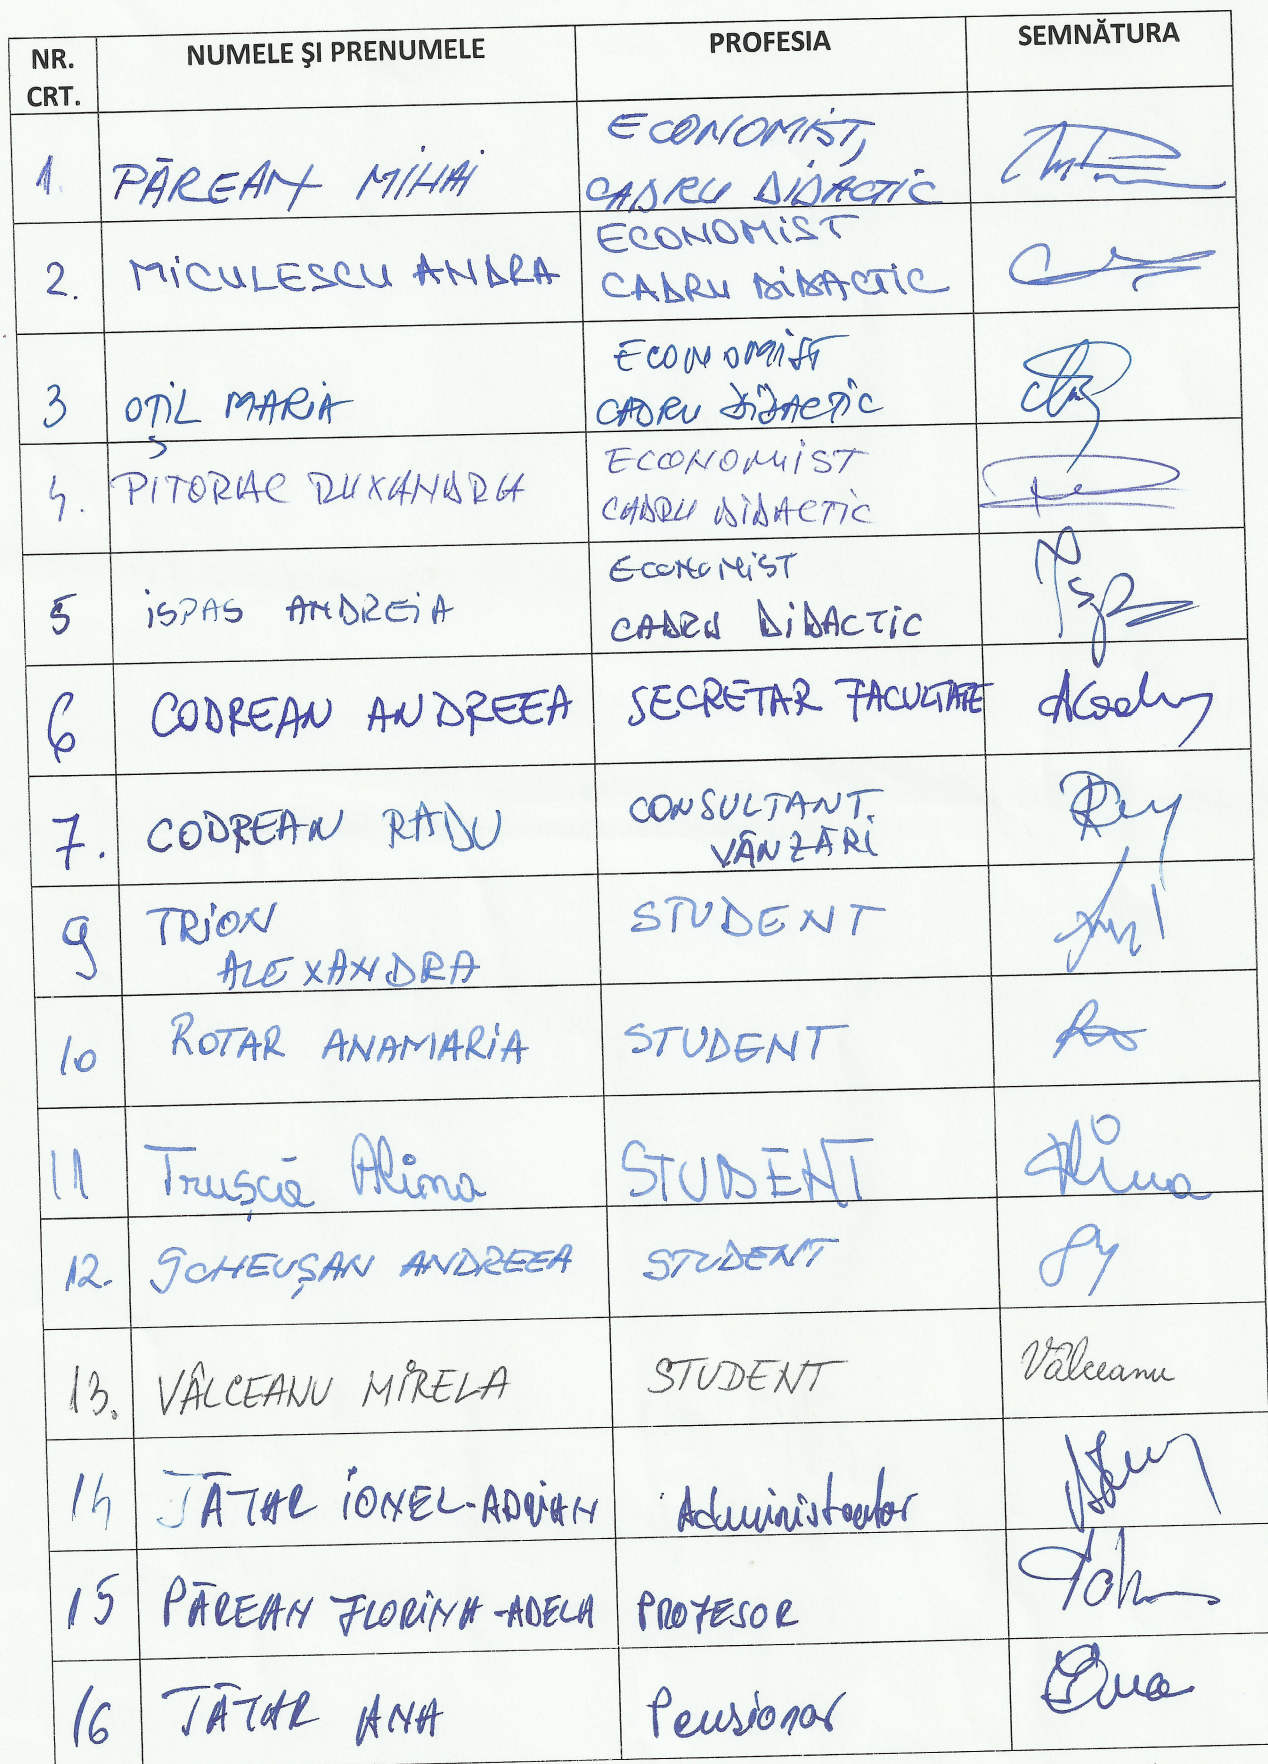 NR. CRT. NUMELE ŞI PRENUMELE PROFESIA SEMNĂTURA
1. PĂREAN MIHAI ECONOMIST, CADRU DIDACTIC
2. MICULESCU ANDRA ECONOMIST CADRU DIDACTIC
3 OȚIL MARIA ECONOMIST CADRU DIDACTIC
4. PITORAC RUXANDRA ECONOMIST CADRU DIDACTIC
5 ISPAS ANDREIA ECONOMIST CADRU DIDACTIC
6 CODREAN ANDREEA SECRETAR FACULTATE
7. CODREAN RADU CONSULTANT. VÂNZĂRI
9 TRION ALEXANDRA STUDENT
10 ROTAR ANAMARIA STUDENT
11 Trușcă Alina STUDENT Alina
12. ANDREEA STUDENT
13. VÂLCEANU MIRELA STUDENT Vâlceanu
14 TĂTAR IONEL-ADRIAN Administrator
15 PĂREAN FLORINA-ADELA PROFESOR
16 TĂTAR ANA Pensionar